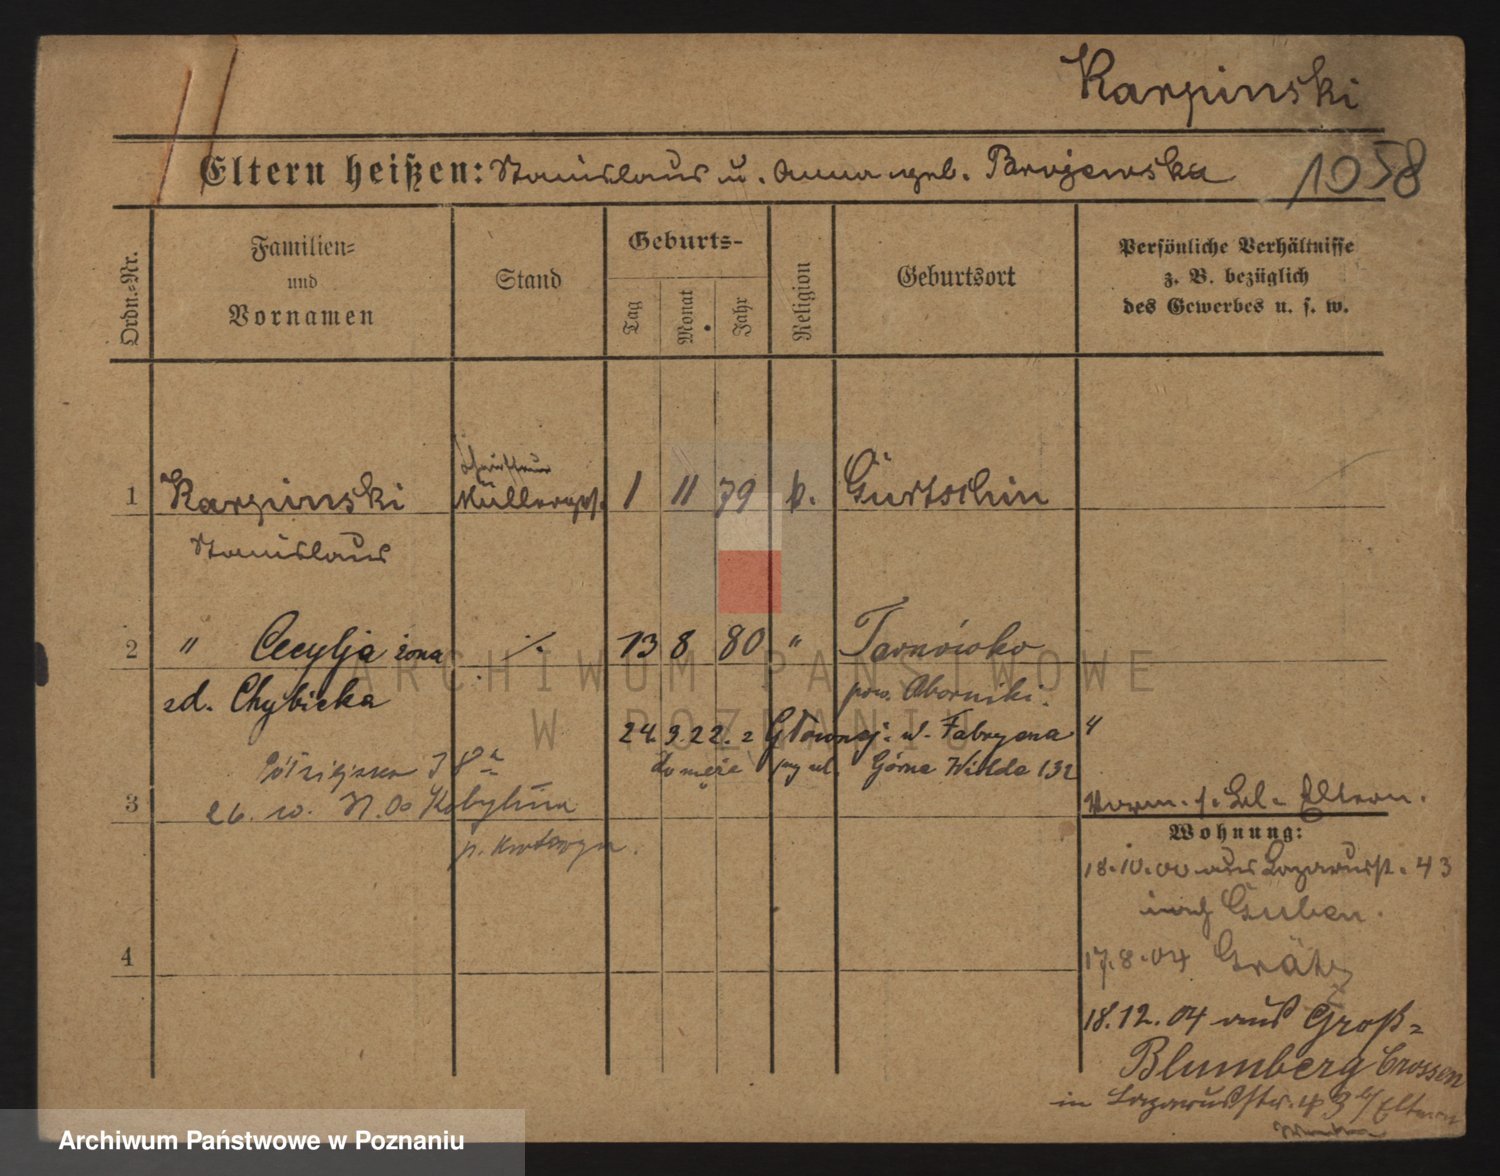 Karpinski
Eltern heißen: Stanislaus u. Anna geb. Brojewska
1058
Ordn.-Nr.
Familien-
und
Vornamen
Stand
Geburts-
Tag
Monat
Jahr
Religion
Geburtsort
Persönliche Verhältnisse
z. B. bezüglich
des Gewerbes u. s. w.
1 Karpinski Müllerges. 1 11 79 k. Gurtschin
Stanislaus
2 " Cecylja żona ·/. 13 8 80 " Tarnówko
zd. Chybicka pow. Oborniki.
24.9.22. z Głównej. ul. Fabryczna 4
do męża przy ul. Górna Wilda 132
3 26. w. N. do Kobylina
p. Krotoszyn.
Eltern.
Wohnung:
18.10.00 aus Lazarusstr. 43
nach Guben.
4
17.8.04 Grätz
18.12.04 aus Groß-
Blumberg Crossen
in Lazarusstr. 43 b/ Eltern
ARCHIWUM PAŃSTWOWE
W POZNANIU
Archiwum Państwowe w Poznaniu